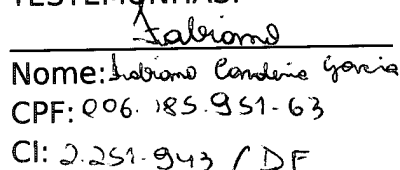 TESTEMUNHAS:
Fabiano
Nome: Fabiano Candeia Garcia
CPF: 006.185.951-63
CI: 2.251.943 / DF